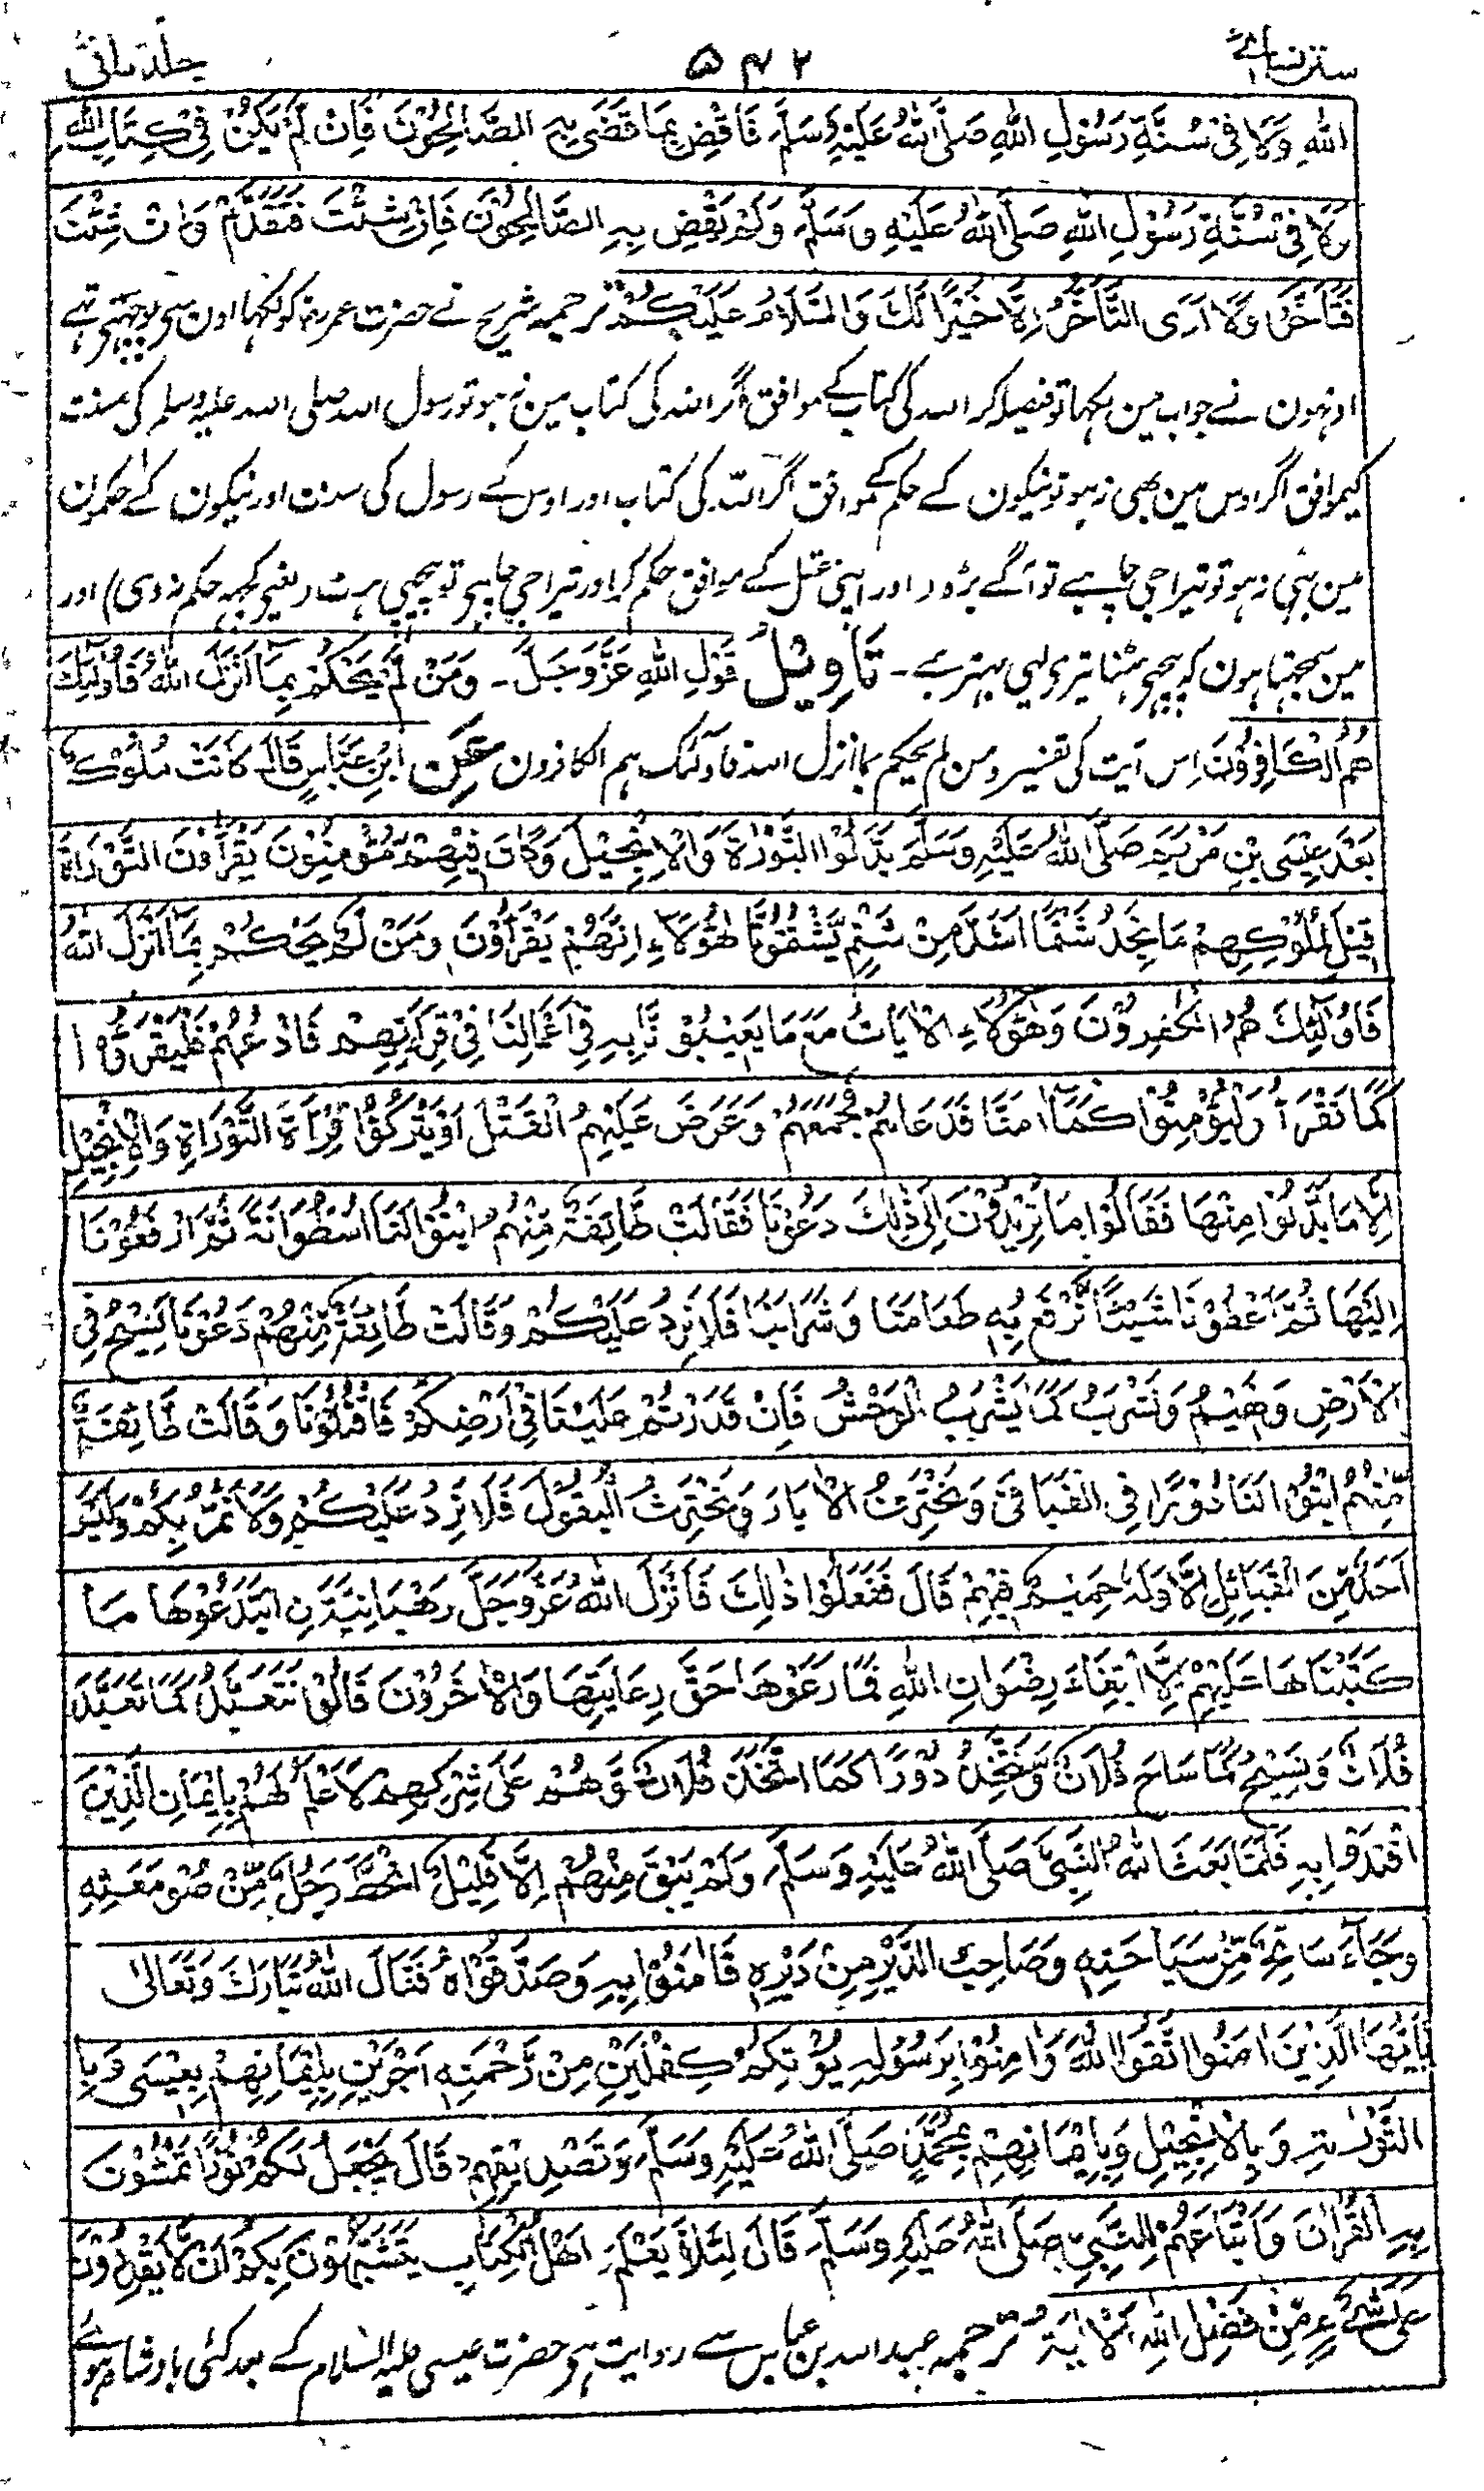 سنن نسائی ۵۴۲ جلد ثانی
اللهِ وَلَا فِیْ سُنَّةِ رَسُوْلِ اللهِ صَلَّی اللهُ عَلَيْهِ وَسَلَّمَ فَاقْضِ بِمَا قَضٰی بِهِ الصَّالِحُوْنَ فَاِنْ لَّمْ يَكُنْ فِیْ كِتَابِ اللهِ
وَلَا فِیْ سُنَّةِ رَسُوْلِ اللهِ صَلَّی اللهُ عَلَيْهِ وَسَلَّمَ وَلَمْ يَقْضِ بِهِ الصَّالِحُوْنَ فَاِنْ شِئْتَ فَتَقَدَّمْ وَاِنْ شِئْتَ
فَتَاَخَّرْ وَلَا اَرَی التَّاَخُّرَ اِلَّا خَيْرًا لَّكَ وَالسَّلَامُ عَلَيْكُمْ ترجمہ شریح نے حضرت عمر رضہ کو لکہا اون سی پوچہتی تہے
اونہون نے جواب مین لکہا تو فیصلہ کر اللہ کی کتاب کے موافق اگر اللہ کی کتاب مین نہ ہو تو رسول اللہ صلی اللہ علیہ وسلم کی سنت
کیموافق اگر اوس مین بھی نہ ہو تو نیکون کے حکم کے موافق اگر اللہ کی کتاب اور اوس کے رسول کی سنت اور نیکون کے حکم ان
مین بہی نہ ہو تو تیرا جی چاہیے تو آگے بڑہ (اور اپنی عقل کے موافق حکم کر) اور تیرا جی چاہی تو پیچہی ہٹ (یعنی کچہہ حکم نہ دی) اور
مین سمجہتا ہون کہ پیچہی ہٹنا تیری لیی بہتر ہے ۔ تَاوِيْلُ قَوْلِ اللهِ عَزَّ وَجَلَّ ۔ وَمَنْ لَّمْ يَحْكُمْ بِمَا اَنْزَلَ اللهُ فَاُولٰئِكَ
هُمُ الْكَافِرُوْنَ اس آیت کی تفسیر ومن لم یحکم بما انزل اللہ فاولٓئک ہم الکافرون عَنِ ابْنِ عَبَّاسٍ قَالَ كَانَتْ مُلُوْكٌ
بَعْدَ عِيْسَی بْنِ مَرْيَمَ صَلَّی اللهُ عَلَيْهِ وَسَلَّمَ بَدَّلُوا التَّوْرٰاةَ وَالْاِنْجِيْلَ وَكَانَ فِيْهِمْ مُّؤْمِنُوْنَ يَقْرَاُوْنَ التَّوْرَاةَ
قِيْلَ لِمُلُوْكِهِمْ مَا نَجِدُ شَتْمًا اَشَدَّ مِنْ شَتْمٍ يَّشْتُمُوْنَّا هٰؤُلَاءِ اِنَّهُمْ يَقْرَاُوْنَ وَمَنْ لَّمْ يَحْكُمْ بِمَا اَنْزَلَ اللهُ
فَاُولٰئِكَ هُمُ الْكٰفِرُوْنَ وَهٰؤُلَاءِ الْاٰيَاتُ مَعَ مَا يَعِيْبُوْنَّا بِهِ فِیْ اَعْمَالِنَا فِیْ قِرَاءَتِهِمْ فَادْعُهُمْ فَلْيَقْرَءُوْا
كَمَا نَقْرَاُ وَلْيُؤْمِنُوْا كَمَا اٰمَنَّا فَدَعَاهُمْ فَجَمَعَهُمْ وَعَرَضَ عَلَيْهِمُ الْقَتْلَ اَوْ يَتْرُكُوْا قِرَاءَةَ التَّوْرَاةِ وَالْاِنْجِيْلِ
اِلَّا مَا بَدَّلُوْا مِنْهَا فَقَالُوْا مَا تُرِيْدُوْنَ اِلٰی ذٰلِكَ دَعُوْنَا فَقَالَتْ طَائِفَةٌ مِّنْهُمُ ابْنُوْا لَنَا اُسْطُوَانَةً ثُمَّ ارْفَعُوْنَا
اِلَيْهَا ثُمَّ اَعْطُوْنَا شَيْئًا نَّرْفَعُ بِهِ طَعَامَنَا وَشَرَابَنَا فَلَا نَرِدُ عَلَيْكُمْ وَقَالَتْ طَائِفَةٌ مِّنْهُمْ دَعُوْنَا نَسِيْحُ فِی
الْاَرْضِ وَنَهِيْمُ وَنَشْرَبُ كَمَا يَشْرَبُ الْوَحْشُ فَاِنْ قَدَرْتُمْ عَلَيْنَا فِیْ اَرْضِكُمْ فَاقْتُلُوْنَا وَقَالَتْ طَائِفَةٌ
مِّنْهُمُ ابْنُوْا لَنَا دُوْرًا فِی الْفَيَافِیْ وَنَحْتَفِرُ الْاٰبَارَ وَنَحْتَرِثُ الْبُقُوْلَ فَلَا نَرِدُ عَلَيْكُمْ وَلَا نَمُرُّ بِكُمْ وَلَيْسَ
اَحَدٌ مِّنَ الْقَبَائِلِ اِلَّا وَلَهُ حَمِيْمٌ فِيْهِمْ قَالَ فَفَعَلُوْا ذٰلِكَ فَاَنْزَلَ اللهُ عَزَّ وَجَلَّ رَهْبَانِيَّةَ نِ ابْتَدَعُوْهَا مَا
كَتَبْنَاهَا عَلَيْهِمْ اِلَّا ابْتِغَاءَ رِضْوَانِ اللهِ فَمَا رَعَوْهَا حَقَّ رِعَايَتِهَا وَالْاٰخَرُوْنَ قَالُوْا نَتَعَبَّدُ كَمَا تَعَبَّدَ
فُلَانٌ وَنَسِيْحُ كَمَا سَاحَ فُلَانٌ وَّنَتَّخِذُ دُوْرًا كَمَا اتَّخَذَ فُلَانٌ وَّهُمْ عَلٰی شِرْكِهِمْ لَا عِلْمَ لَهُمْ بِاِيْمَانِ الَّذِيْنَ
اقْتَدَوْا بِهِ فَلَمَّا بَعَثَ اللهُ النَّبِیَّ صَلَّی اللهُ عَلَيْهِ وَسَلَّمَ وَلَمْ يَبْقَ مِنْهُمْ اِلَّا قَلِيْلٌ انْحَطَّ رَجُلٌ مِّنْ صَوْمَعَتِهِ
وَجَاءَ سَائِحٌ مِّنْ سَيَاحَتِهِ وَصَاحِبُ الدَّيْرِ مِنْ دَيْرِهِ فَاٰمَنُوْا بِهِ وَصَدَّقُوْاهُ فَقَالَ اللهُ تَبَارَكَ وَتَعَالٰی
يٰاَيُّهَا الَّذِيْنَ اٰمَنُوا اتَّقُوا اللهَ وَاٰمِنُوْا بِرَسُوْلِهِ يُؤْتِكُمْ كِفْلَيْنِ مِنْ رَّحْمَتِهِ اَجْرَيْنِ بِاِيْمَانِهِمْ بِعِيْسٰی وَبِا
التَّوْرٰىةِ وَبِالْاِنْجِيْلِ وَبِاِيْمَانِهِمْ بِمُحَمَّدٍ صَلَّی اللهُ عَلَيْهِ وَسَلَّمَ وَتَصْدِيْقِهِمْ قَالَ يَجْعَلْ لَكُمْ نُوْرًا تَمْشُوْنَ
بِهِ الْقُرْاٰنَ وَاتِّبَاعَهُمُ النَّبِیَّ صَلَّی اللهُ عَلَيْهِ وَسَلَّمَ قَالَ لِئَلَّا يَعْلَمَ اَهْلُ الْكِتَابِ يَتَشَبَّهُوْنَ بِكُمْ اَنْ لَّا يَقْدِرُوْنَ
عَلٰی شَیْءٍ مِّنْ فَضْلِ اللهِ الْاٰيَةُ ترجمہ عبد اللہ بن عباس سے روایت ہی حضرت عیسی علیہ السلام کے بعد کئی بادشاہ ہوئے